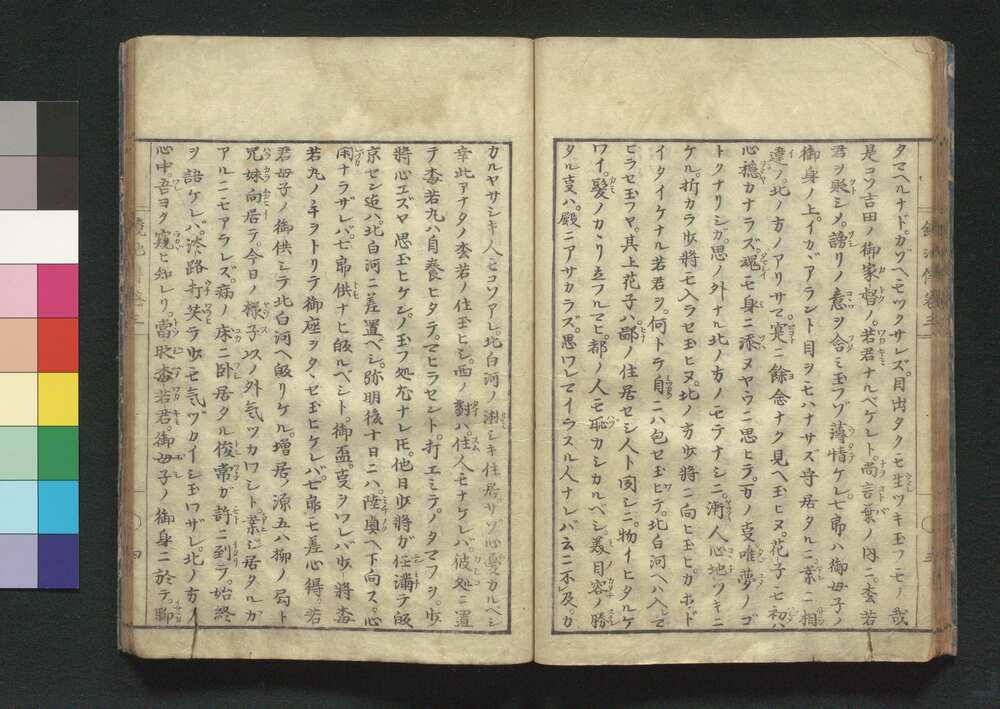 タマヘルナドガゾヘモツクサレズ。目出タクモ生ツキ玉フモノ哉
是コソ吉田ノ御家督ノ。若君ナルベケレト。尚言葉ノ内ニ。杢若
君ヲ賺シメ。謗リノ意ヲ含ミ玉フゾ薄情ケレ。七郎ハ御母子ノ
御身ノ上。イカヾアラント目ヲモハナサズ守居タルニ。案ニ相
違ノ。北ノ方ノアリサマ。実ニ餘念ナク見ヘ玉ヒヌ。花子モ初ハ
心穏カナラズ。魂モ身ニ添ヌヤウニ思ヒテ。万ノ支唯夢ノゴ
トクナリシガ。思ノ外ナル北ノ方ノモテナシニ。漸人心地ツキニ
ケル。折カラ歩將モ入ラセ玉ヒヌ。北ノ方歩將ニ向ヒ玉ヒ。カホド
イタイケナル若君ヲ。何トテ自ニハ包セ玉ヒヲ。北白河ヘハ入レテ
ヒラセ玉フヤ。其上花子ハ鄙ノ住居セシ人ト同シニ。物イヒタルケ
ワイ。髪ノカヽリ立フルマヒ。都ノ人モ恥カシカルベシ。美目容ノ勝
タル支ハ。殿ニアサカラズ。思ワレマイラスル人ナレバ云ニ不及。カ
カルヤサシキ人モコソアレ。北白河ノ淋シキ住居。サゾ心憂カルベシ
幸此アナタノ杢若ノ住玉ヒシ。西ノ對ハ住人モナケレバ。彼処ニ置
テ杢若九ハ自養ヒタテ。マヒラセント。打エミテ。ノタマフ。歩
將心エズヤ思玉ヒケン。ノ玉フ処尤ナレ𪜈。他日歩將ガ任満テ皈
京セン迠ハ。北白河ニ差置ベシ。弥明後十日ニハ。陸奥ヘ下向ス。心
閑ナラザレバ。七郎供ナヒ皈ルベシト。御盃支ヲワレバ。歩將杢
若丸ノ手ヲトリテ御座ヲタヽセ玉ヒケレバ。七郎モ差心得。若
君母子ノ御供シテ北白河ヘ皈リケル。増居ノ源五ハ柳ノ局ト
兄妹向居テ。今日ノ様子以ノ外気ヅカワシト。案ジ居タルガ
アルニモアラレズ。病ノ床ニ臥居タル俊常ガ許ニ到テ。始終
ヲ語ケレバ。淡路打笑テ歩モ気ヅカイシ玉ワザレ。北ノ方ノ
心中。吾ヨク窺ヒ知レリ。當时杢若君。御母子ノ御身ニ於テ。聊